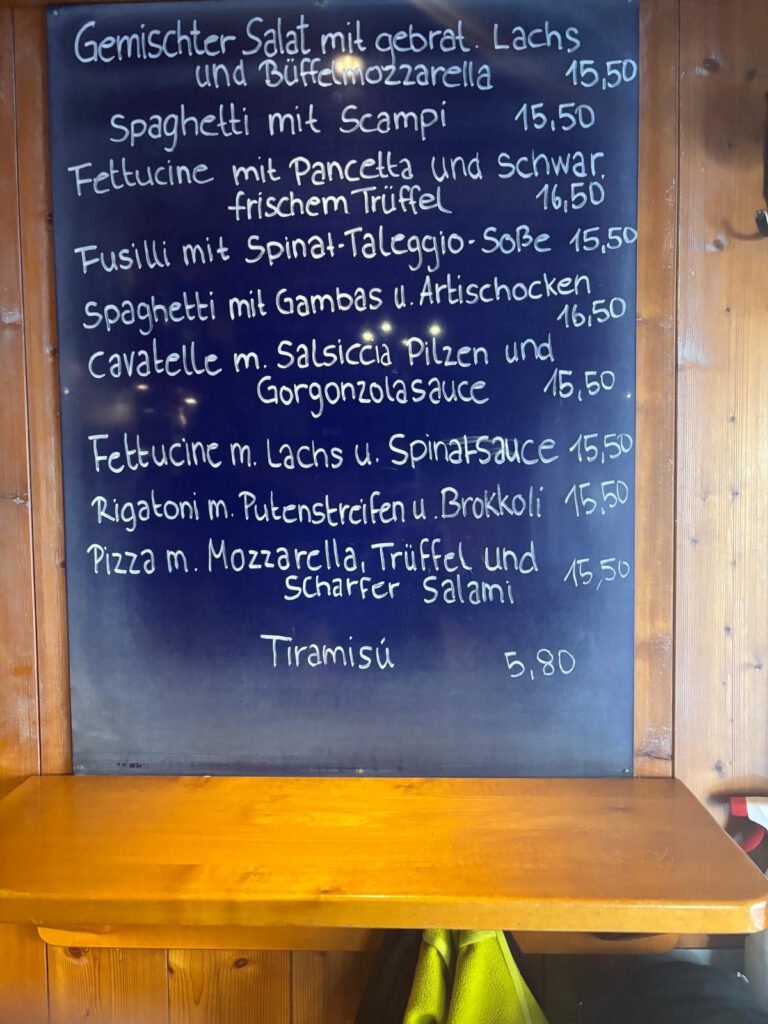 Gemischter Salat mit gebrat. Lachs
und Büffelmozzarella 15,50
Spaghetti mit Scampi 15,50
Fettucine mit Pancetta und schwar.
frischem Trüffel 16,50
Fusilli mit Spinat-Taleggio-Soße 15,50
Spaghetti mit Gambas u. Artischocken
16,50
Cavatelle m. Salsiccia Pilzen und
Gorgonzolasauce 15,50
Fettucine m. Lachs u. Spinatsauce 15,50
Rigatoni m. Putenstreifen u. Brokkoli 15.50
Pizza m. Mozzarella, Trüffel und
Scharfer Salami 15,50
Tiramisú 5,80